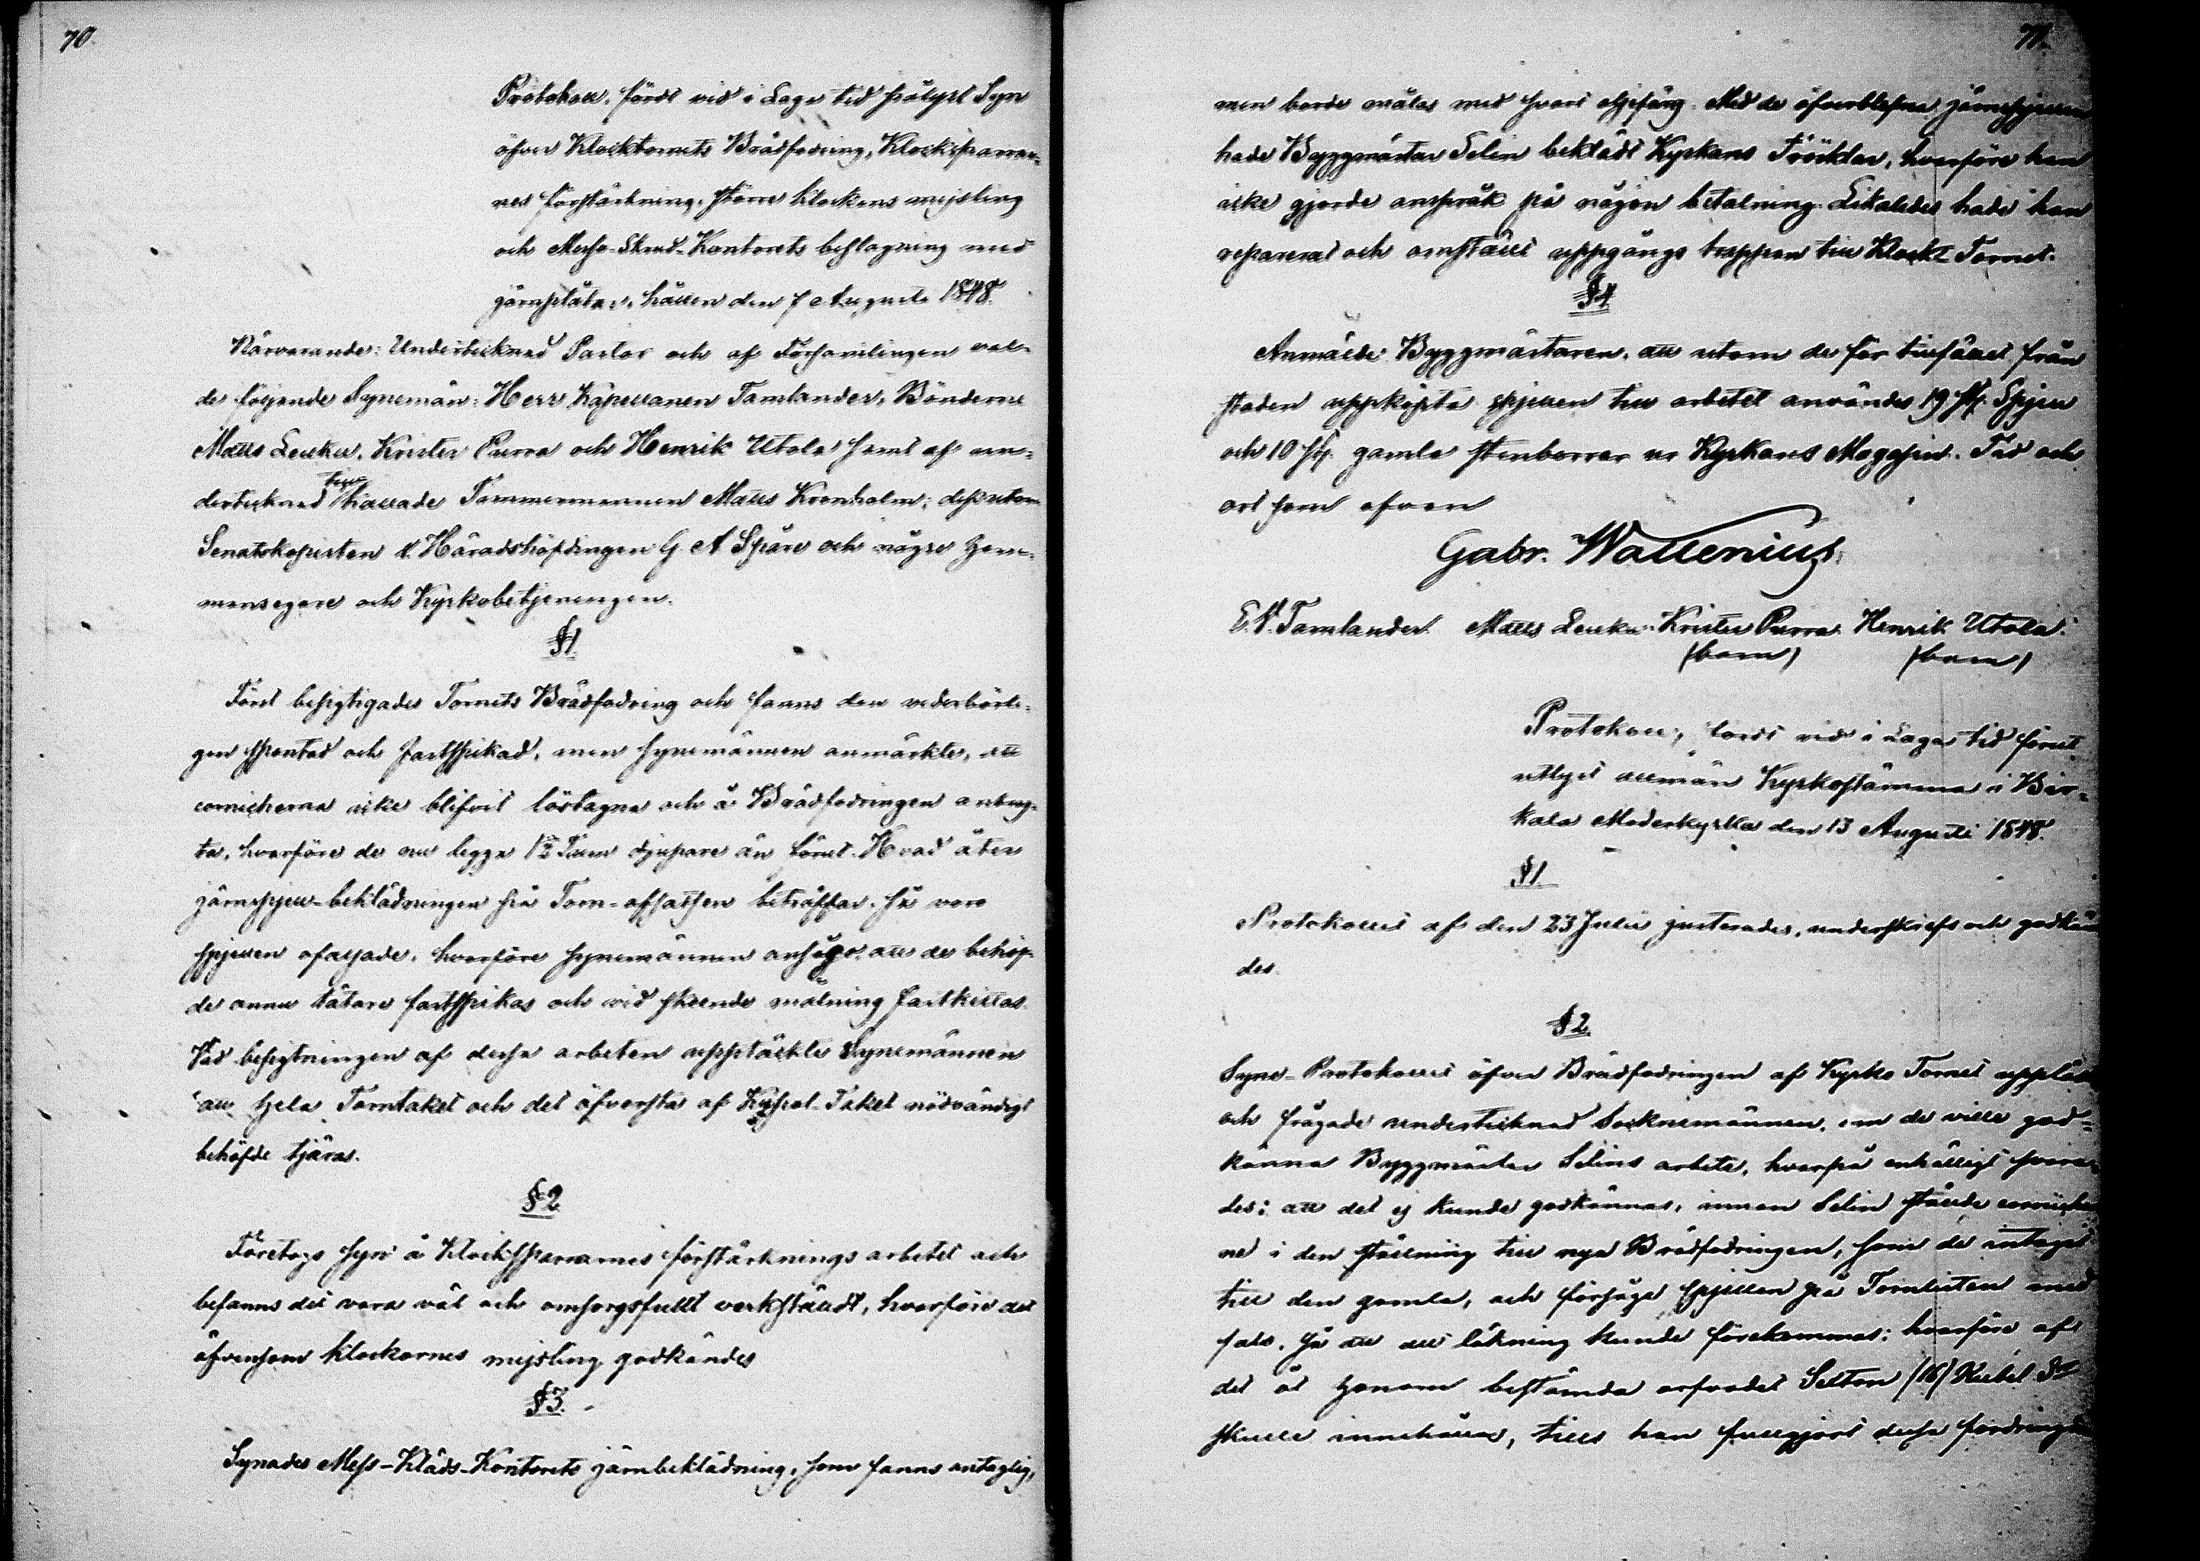 70.
Protokoll, fördt vid i Laga tid pålyst Syn
öfver Klocktornets Brädfodring, Klocksparrar-
nes förstärkning, större klockans mejsling
och Messe-Skrud-Kontorets beslagning med
järnplåtar, hållen den 7 Augusti 1848.
Närvarande: Undertecknad Pastor och af Församlingen val-
de följande Synemän: Herr Kapellanen Tamlander, Bönderne
Matts Leuku, Krister Purra och Henrik Utola samt af un-
dertecknad kallade Timmermannen Matts Kronholm; dessutom
Senatskopisten v. Häradshöfdingen G. A Spåre och några hem-
mansegare och Kyrkobetjeningen.
§1.
Först besigtigades Tornets Brädfodring och fanns den vederbörli-
gen spontad och fastspikad, men synemännen anmärkte, att
cornicherna icke blifvit löstagna och å Brädfodringen anbrag-
ta, hvarföre de nu ligga 1½ Tum djupare än förut. Hvad åter
järnspjell-beklädningen på Torn-afsatsen beträffar, så voro
spjellen ofalsade, hvarföre synemännen ansågo, att de behöf-
de ännu tätare fastspikas och vid skeende målning fastkittas.
Vid besigtningen af dessa arbeten upptäckte Synemännen
att hela Torntaket och det öfversta af Kyrkot-Taket nödvändigt
behöfde tjäras.
§2.
Företogs syn å Klocksparrarnes förstärknings arbetet och
befanns det vara väl och omsorgsfullt verkstäldt, hvarföre det
äfvensom klockornes mejsling godkändes
§3.
Synades Mess-Kläds-Kontorets järnbeklädning, som fanns antaglig,
71.
men borde målas med svart oljefärg. Med de öfverblefna järnspjellen
hade Byggmästar Selin beklädt Kyrkans Trösklar, hvarföre han
icke gjorde anspråk på någon betalning. Likaledes hade han
reparerat och omställt uppgångs trappan till Klock Tornet.
§4
Anmälde Byggmästaren, att utom de för tillfället från
staden uppköpta spjellen till arbetet användes 19 st. Spjell
och 10 st. gamla stenborrar ur Kyrkans Magasin. Tid och
ort som ofvan
Gabr. Wallenius.
E. V. Tamlander. Matts Leuku. Krister Purra. Henrik Utola.
(bom) (bom)
Protokoll, fördt vid i Laga tid förut
utlyst allmän Kyrkostämma i Bir-
kala Moderkyrka den 13 Augusti 1848.
§1
Protokollet af den 23 Julii justerades, underskrefs och godkän
des.
§2.
Syne-Protokollet öfver Brädfodringen af Kyrko Tornet upplästes
och frågade undertecknad Socknemännen, om de ville god-
känna Byggmästar Selins arbete, hvarpå enhälligt svara-
des: att det ej kunde godkännas, innan Selin ställde cornicher
ne i den ställning till nya Brädfodringen, som de intagit
till den gamla, och försåge spjellen på Tornlisten med
fals, så att all läkning kunde förekommas; hvarföre af
det åt honom bestämda arfvodet Sexton (16) Rubel Sr
skulle innehållas, tills han fullgjort dessa fordringar